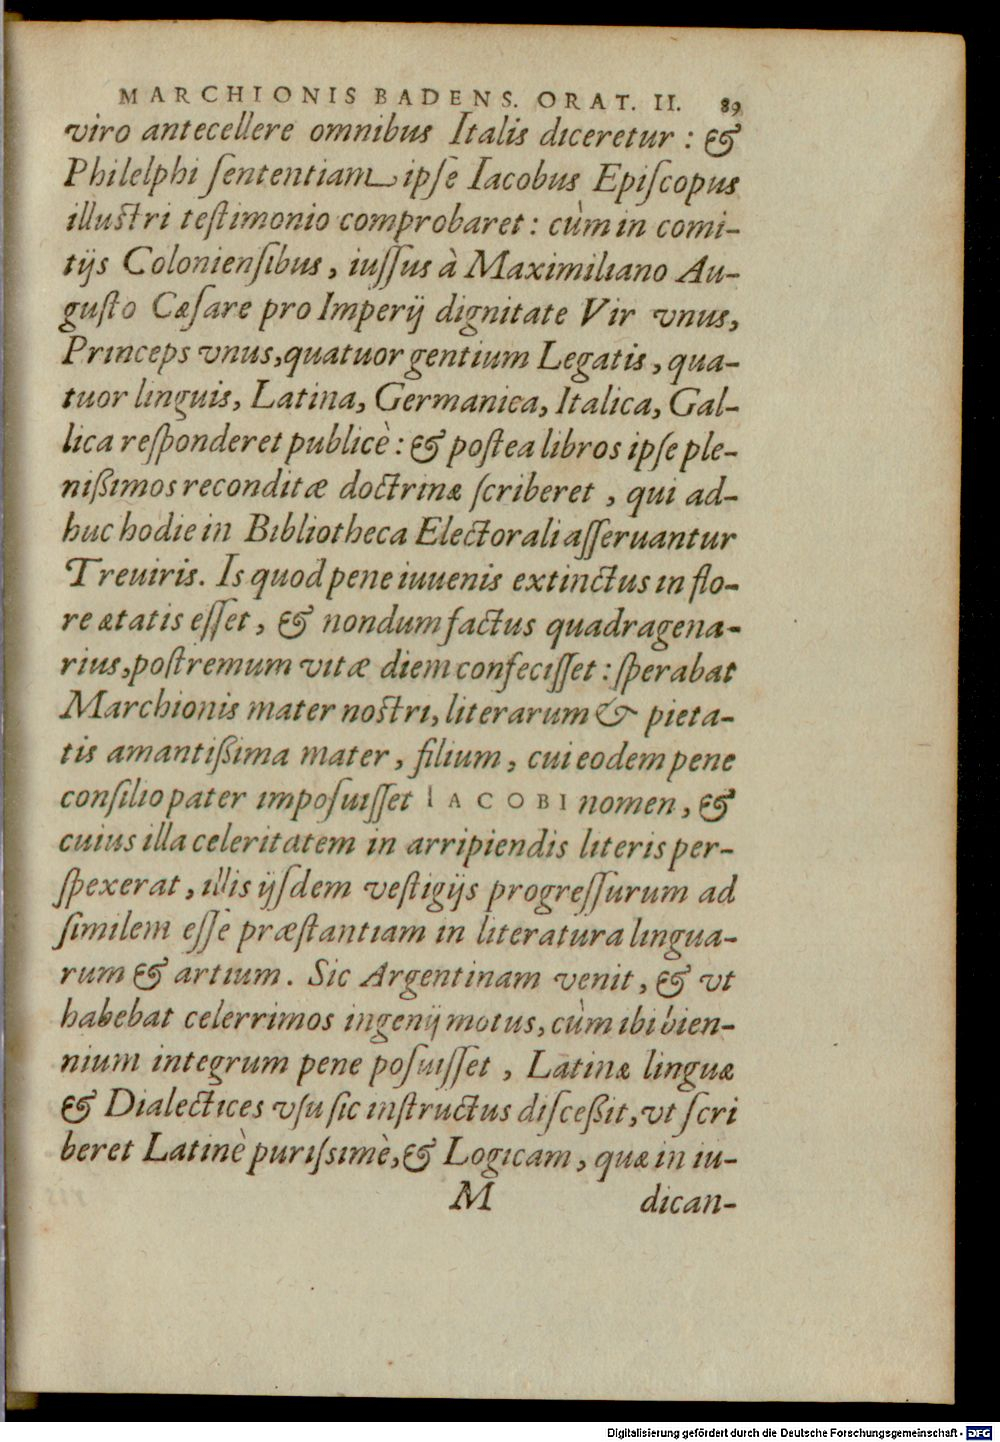 MARCHIONIS BADENS. ORAT. II. 89
viro antecellere omnibus Italis diceretur : &
Philelphi ſententiam ipſe Iacobus Epiſcopus
illuſtri teſtimonio comprobaret : cùm in comi-
tijs Colonienſibus, iuſſus à Maximiliano Au-
guſto Cæſare pro Imperij dignitate Vir vnus,
Princeps vnus, quatuor gentium Legatis, qua-
tuor linguis, Latina, Germanica, Italica, Gal-
lica reſponderet publicè : & poſtea libros ipſe ple-
nißimos reconditæ doctrinæ ſcriberet, qui ad-
huc hodie in Bibliotheca Electorali aſſeruantur
Treuiris. Is quod pene iuuenis extinctus in flo-
re ætatis eſſet, & nondum factus quadragena-
rius, poſtremum vitæ diem confeciſſet : ſperabat
Marchionis mater noſtri, literarum & pieta-
tis amantißima mater, filium, cui eodem pene
conſilio pater impoſuiſſet IACOBI nomen, &
cuius illa celeritatem in arripiendis literis per-
ſpexerat, illis ijſdem veſtigijs progreſſurum ad
ſimilem eſſe præſtantiam in literatura lingua-
rum & artium. Sic Argentinam venit, & vt
habebat celerrimos ingenij motus, cùm ibi bien-
nium integrum pene poſuiſſet, Latinæ linguæ
& Dialectices vſu ſic inſtructus diſceßit, vt ſcri
beret Latinè puriſsimè, & Logicam, quæ in iu-
M dican-
Digitalisierung gefördert durch die Deutsche Forschungsgemeinschaft - DFG